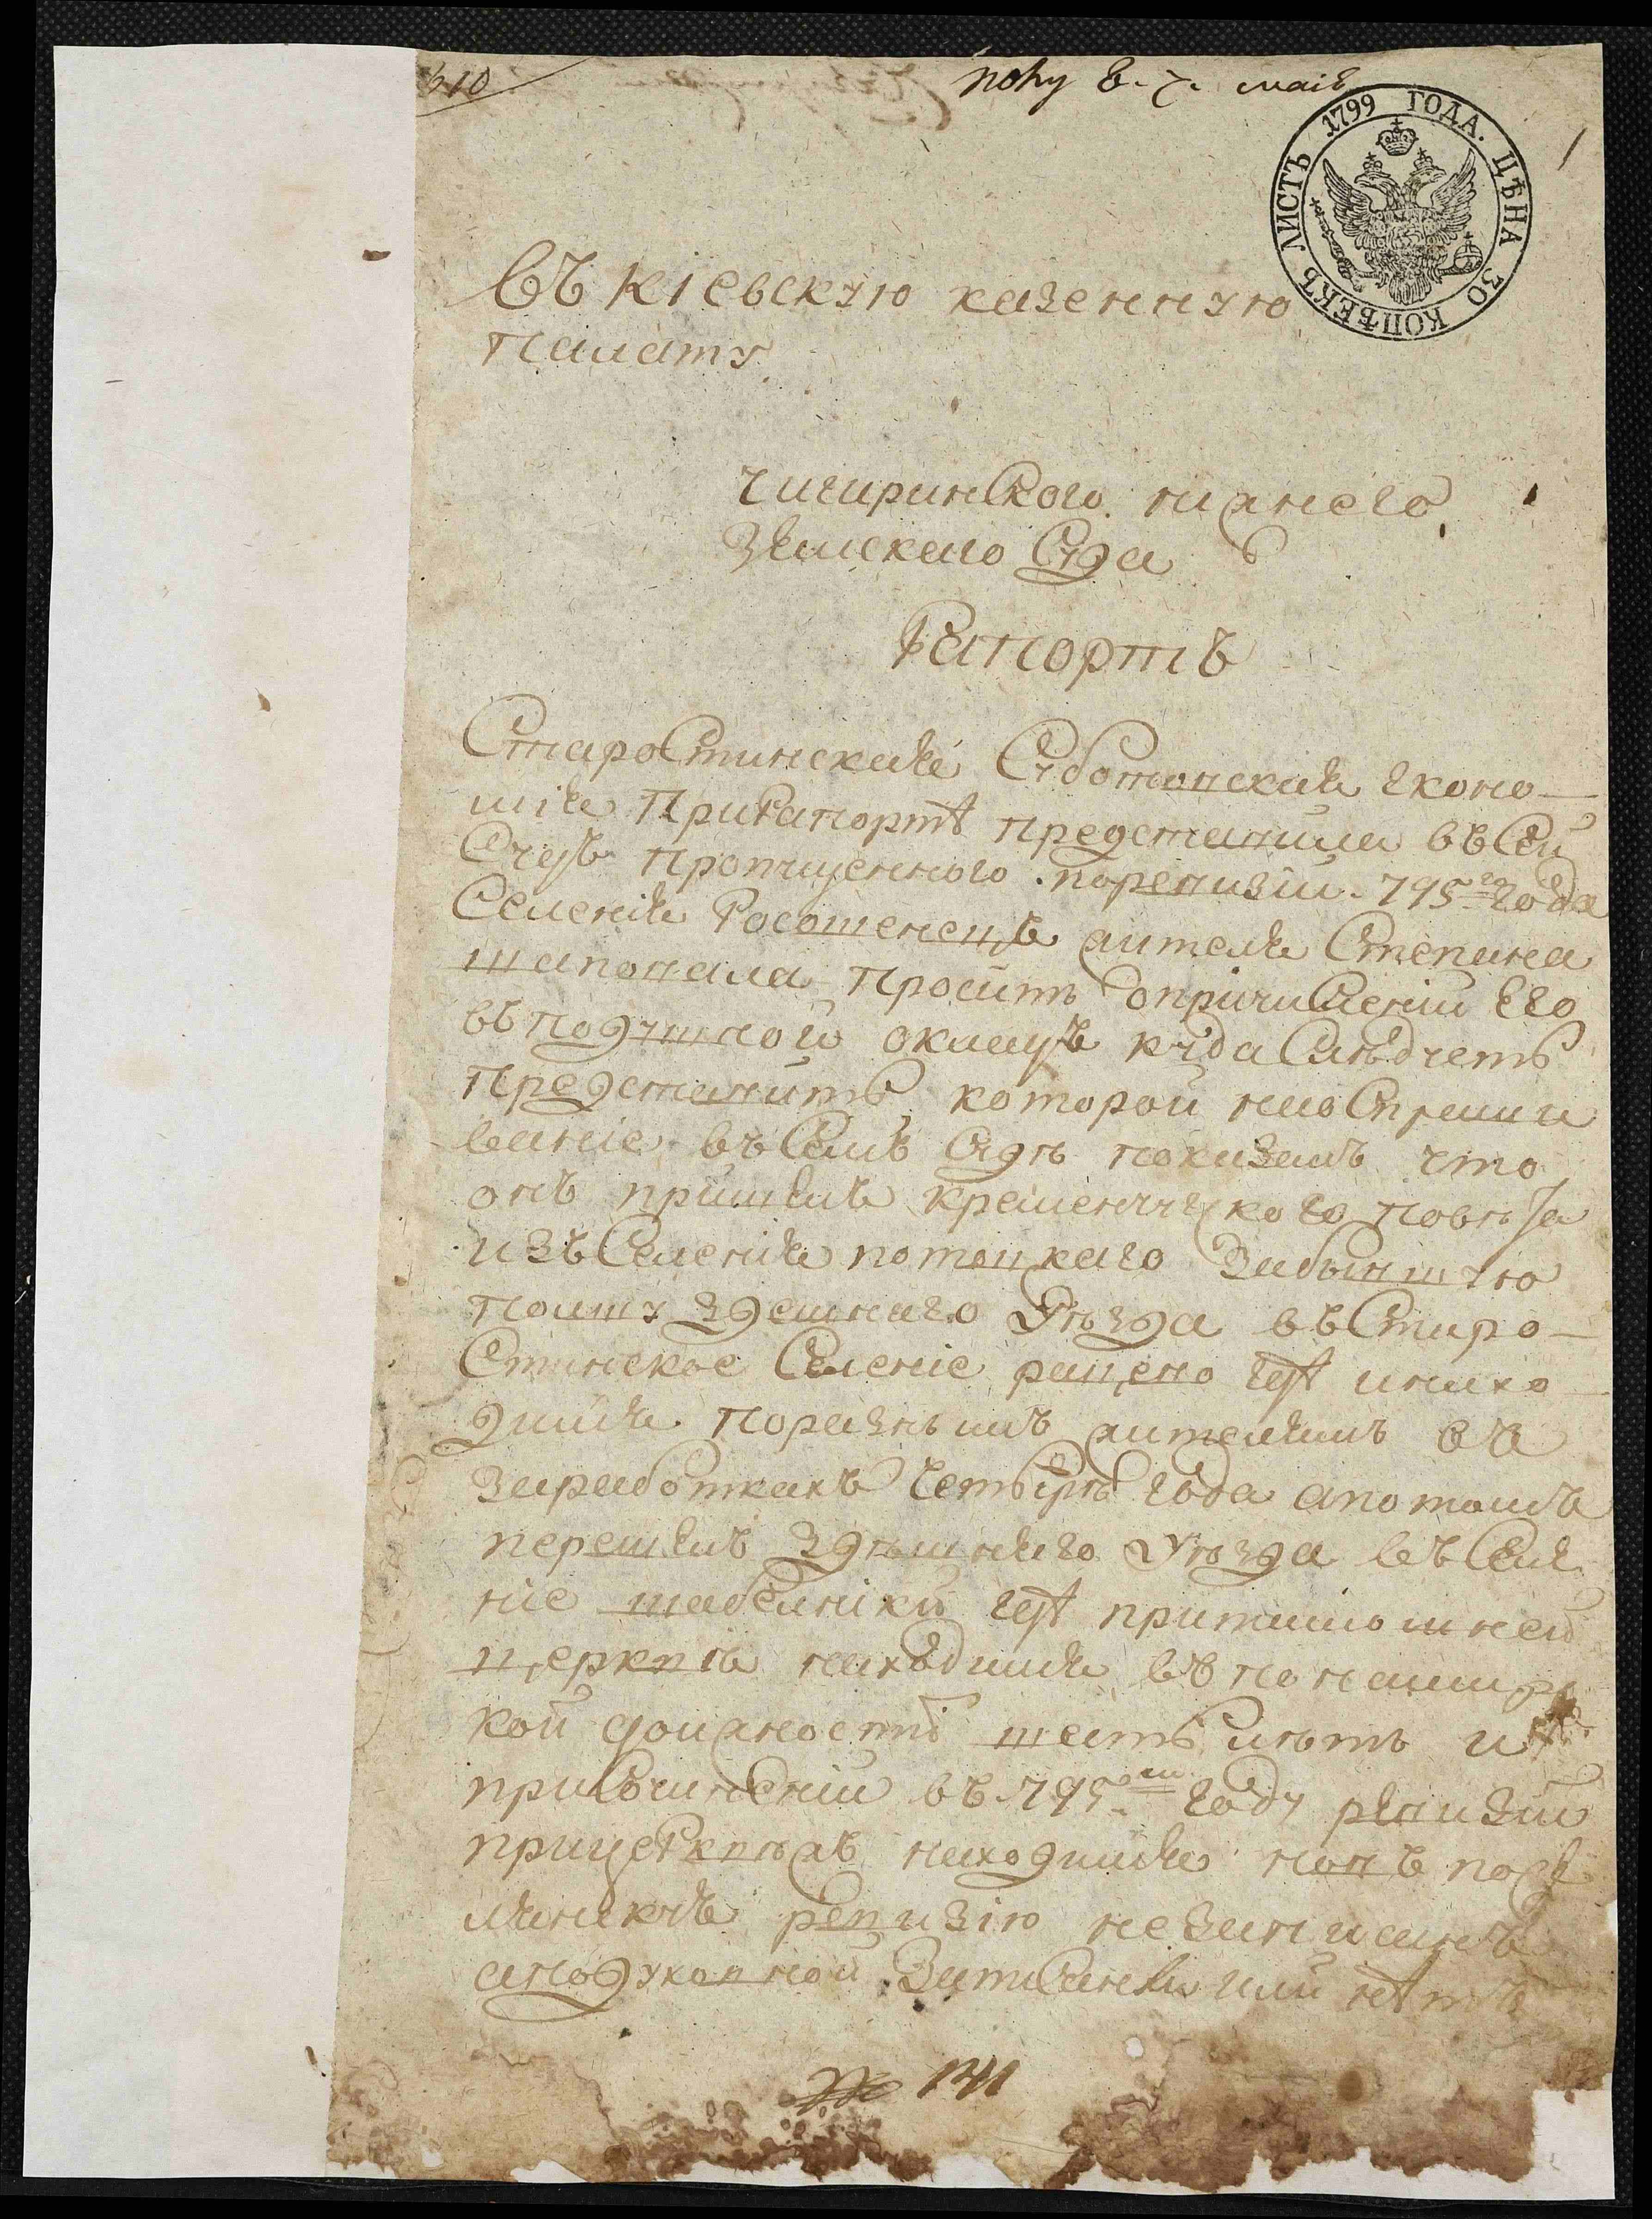 310
полу в. 7. маія
1
ЛИСТЪ 1799 ГОДА. ЦѢНА 30 КОПѢЕКЪ
Въ Кіевскую казенную
палату
Чигиринского нижнего
Земскаго Суда
Рапортъ
Староστинская Суботовская еконо-
мія при рапортѣ представила въ сей
Судъ пропущенного по ревизіи 795го года
Селенія Росошенецъ жителя Степана
шаповала просить о причисленіи его
въ подушной окладъ куда слѣдуетъ
представить которой на спраши
ваніе въ семъ судѣ показалъ что
онъ пришелъ Кременчуцкого повѣта
изъ Селенія потоцкаго за бытность
полшу здешнего уѣзда въ Старо-
стинское Селеніе рацево гдѣ и нахо
дился по разнымъ жителямъ въ
заработкахъ четыре года а потомъ
перешелъ здѣшняго уѣзда въ Селе
ніе шабелники гдѣ при тамошней
церквѣ находился въ понамар
кой должности шесть лѣтъ и
при сочиненіи въ 795ом году ревизіи
при церквѣ жъ находился но въ пос
лянскую ревизію не записанъ
а по духовной записанъ ли или нѣтъ
141